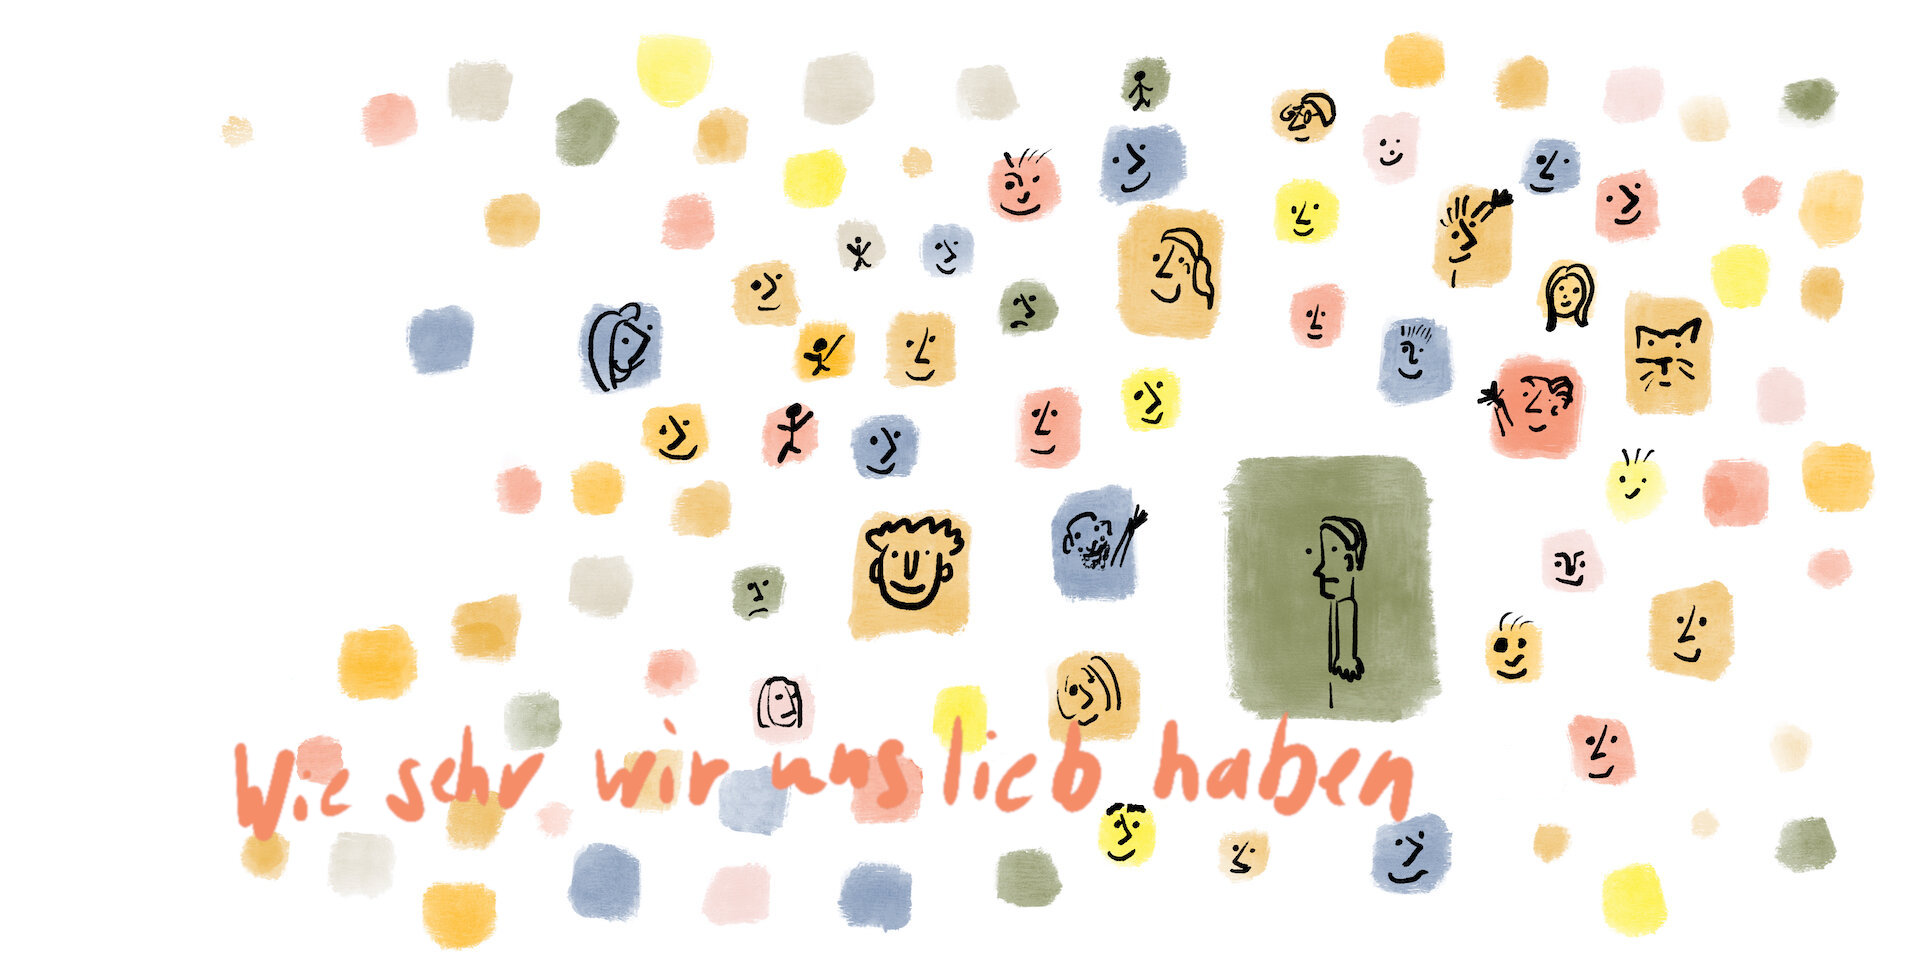 Wie sehr wir uns lieb haben